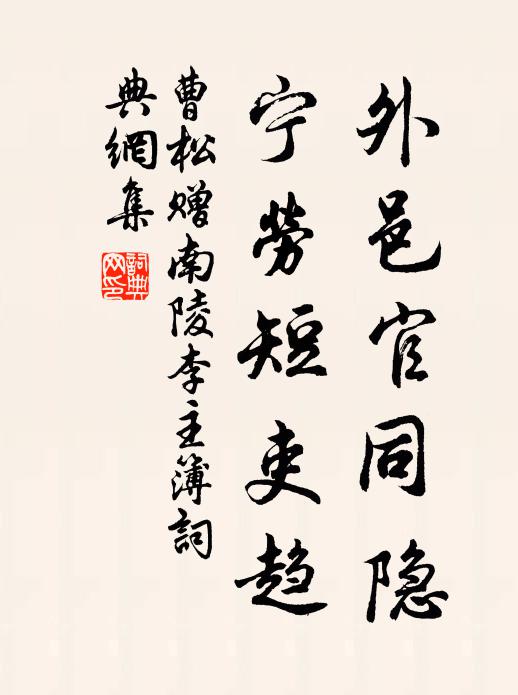 外邑官同隐
宁劳短吏趋
曹松赠南陵李主簿詞
典網集
詞典网印